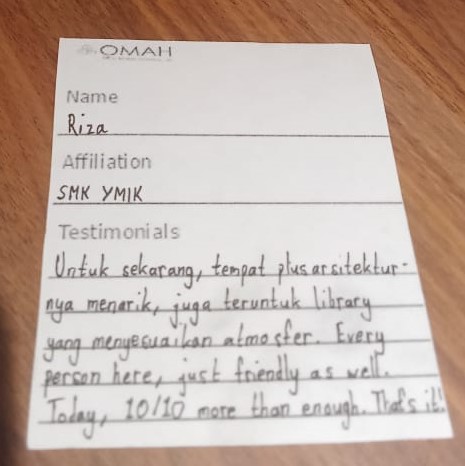 OMAH
Name
Riza
Affiliation
SMK YMIK
Testimonials
Untuk sekarang, tempat plus arsitektur-
nya menarik, juga teruntuk library
yang menyesuaikan atmosfer. Every
person here, just friendly as well.
Today, 10/10 more than enough. That's it!